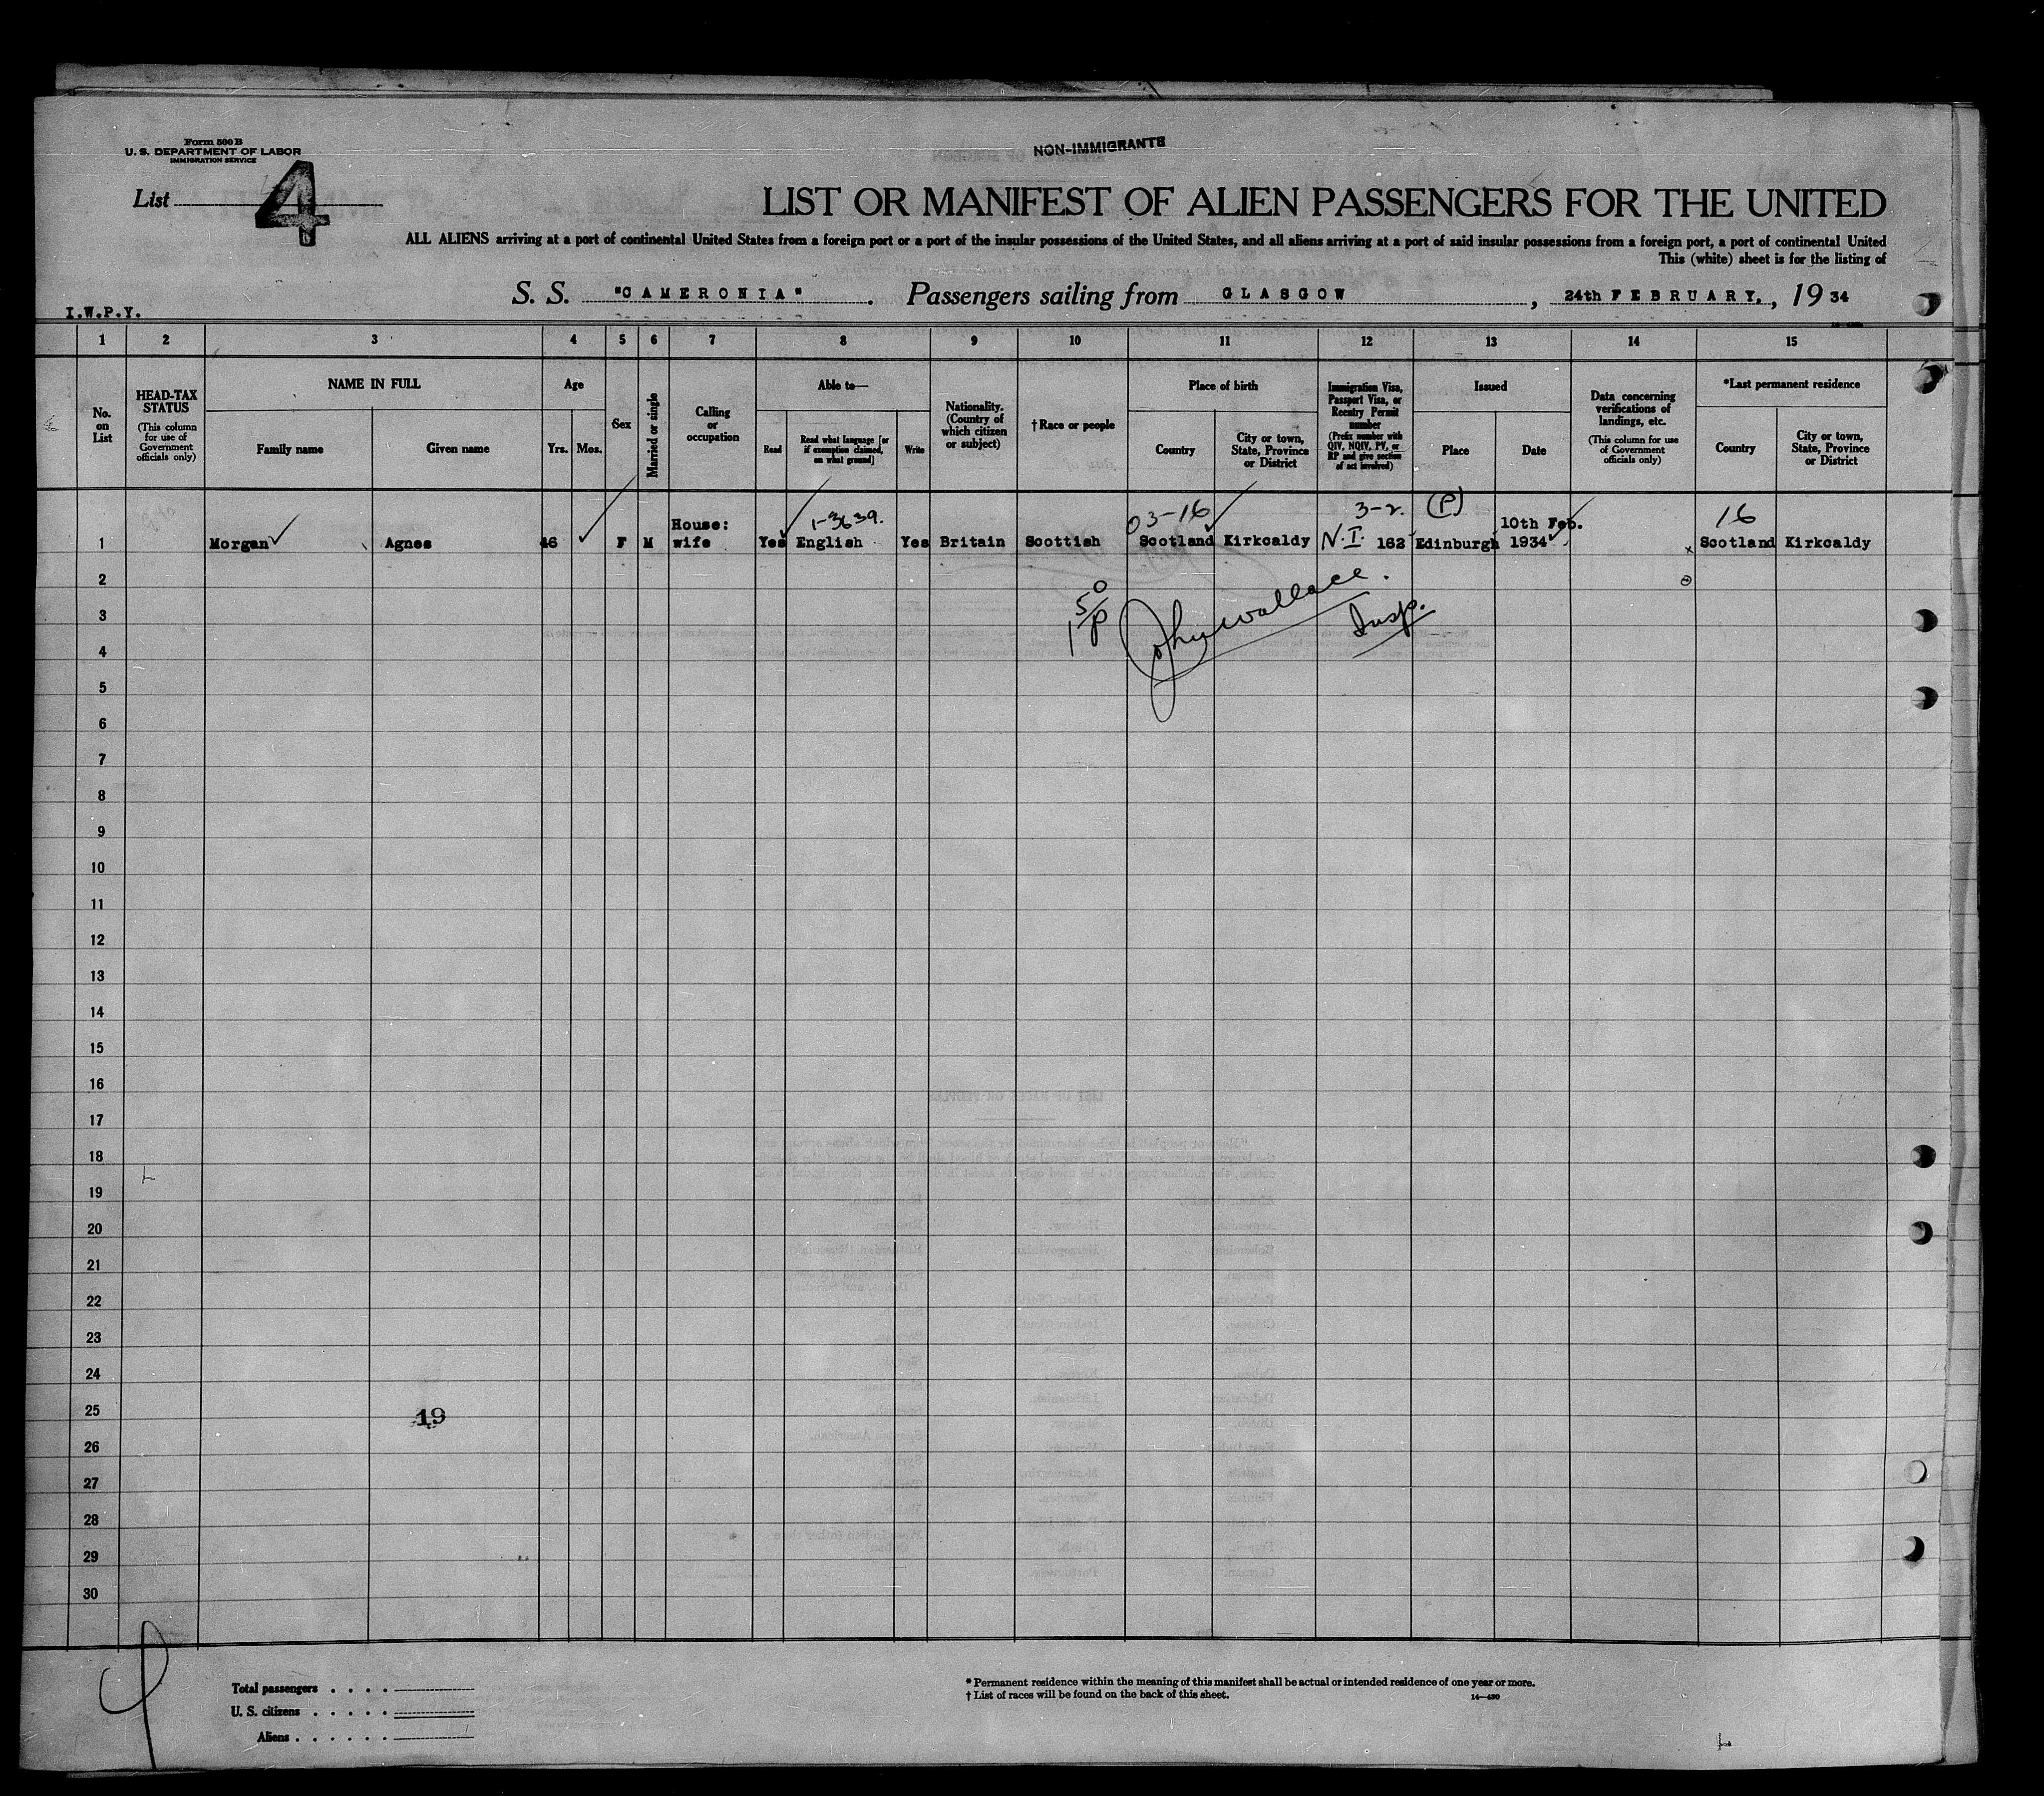 Form 500 B
U. S. DEPARTMENT OF LABOR
IMMIGRATION SERVICE
NON-IMMIGRANTS
List 4
LIST OR MANIFEST OF ALIEN PASSENGERS FOR THE UNITED
ALL ALIENS arriving at a port of continental United States from a foreign port or a port of the insular possessions of the United States, and all aliens arriving at a port of said insular possessions from a foreign port, a port of continental United
This (white) sheet is for the listing of
S. S. "CAMERONIA". Passengers sailing from GLASGOW, 24th FEBRUARY., 1934
I.W.P.Y.
1 2 3 4 5 6 7 8 9 10 11 12 13 14 15
No. on List
HEAD-TAX STATUS
(This column for use of Government officials only)
NAME IN FULL
Family name
Given name
Age
Yrs. Mos.
Sex
Married or single
Calling or occupation
Able to—
Read
Read what language [or if exemption claimed, on what ground]
Write
Nationality. (Country of which citizen or subject)
† Race or people
Place of birth
Country
City or town, State, Province or District
Immigration Visa, Passport Visa, or Reentry Permit number
(Prefix number with QIV, NQIV, PV, or RP and give section of act involved)
Issued
Place
Date
Data concerning verifications of landings, etc.
(This column for use of Government officials only)
*Last permanent residence
Country
City or town, State, Province or District
1-3639. 03-16 3-2. (P) 16
House: 10th Feb.
1 Morgan Agnes 46 F M wife Yes English Yes Britain Scottish Scotland Kirkcaldy N.I. 162 Edinburgh 1934 Scotland Kirkcaldy
2
3
John Wallace.
Insp.
4
5
6
7
8
9
10
11
12
13
14
15
16
17
18
19
20
21
22
23
24
25
19
26
27
28
29
30
Total passengers
U. S. citizens
Aliens
* Permanent residence within the meaning of this manifest shall be actual or intended residence of one year or more.
† List of races will be found on the back of this sheet.
14—430